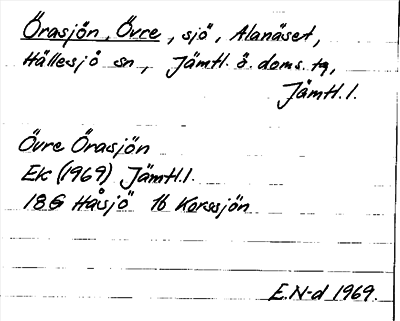 Örasjön, Övre, sjö, Alanäset,
Hällesjö sn, Jämtl. ö. doms. tg,
Jämtl. l.
Övre Örasjön
Ek (1969) Jämtl. l.
18G Håsjö 1b Korssjön
E.N-d 1969.